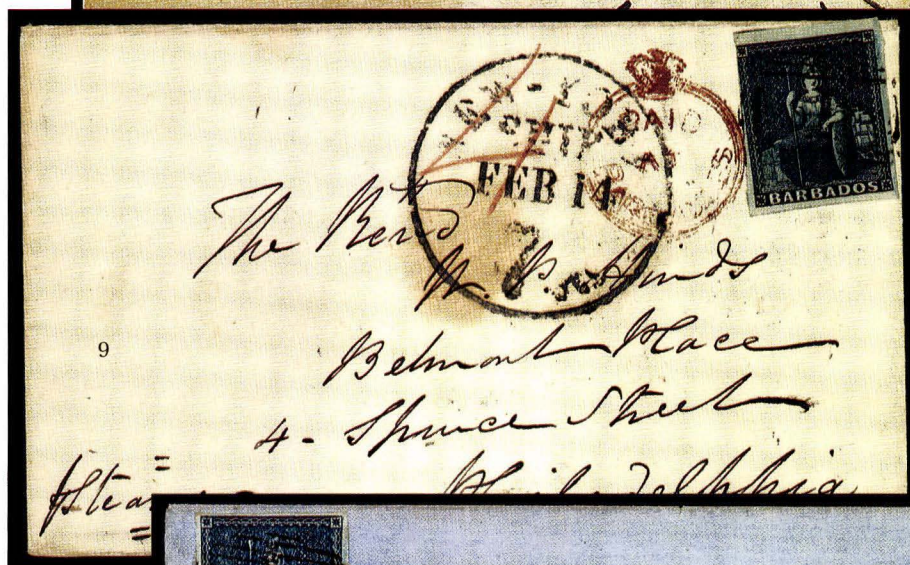 NEW-YORK
SHIP
FEB 14
7 cts
PAID
BARBADOS
The Revd
W. P. Hinds
Belmont Place
4 - Spruce Street
Philadelphia
9